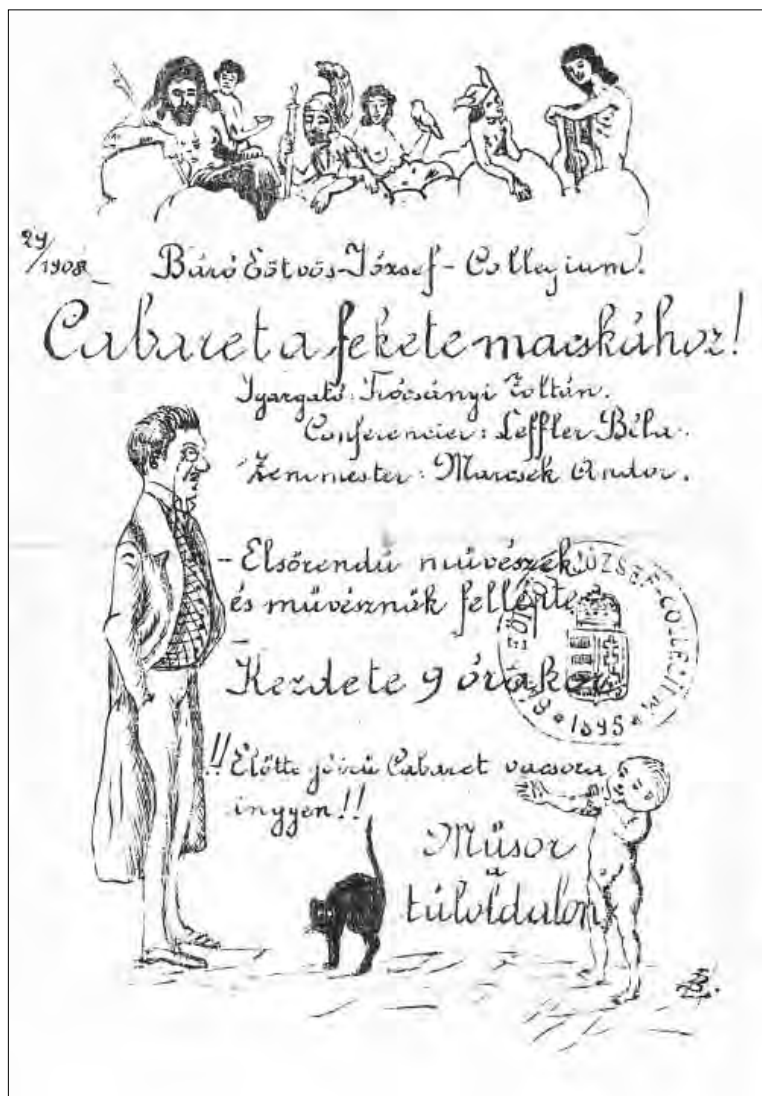 29/1908.
Báró Eötvös-József-Collegium.
Cabaret a fekete macskához!
Igazgató: Trócsányi Zoltán.
Conferencier: Leffler Béla.
Zenemester: Marcsek Andor.
- Elsőrendű művészek
és művésznők fellépte.
-
Kezdete 9 órakor
!! Előtte jóízű Cabaret vacsora
ingyen!!
Műsor
a
túloldalon
B. EÖTVÖS JÓZSEF-COLLEGIUM
* 1895 *